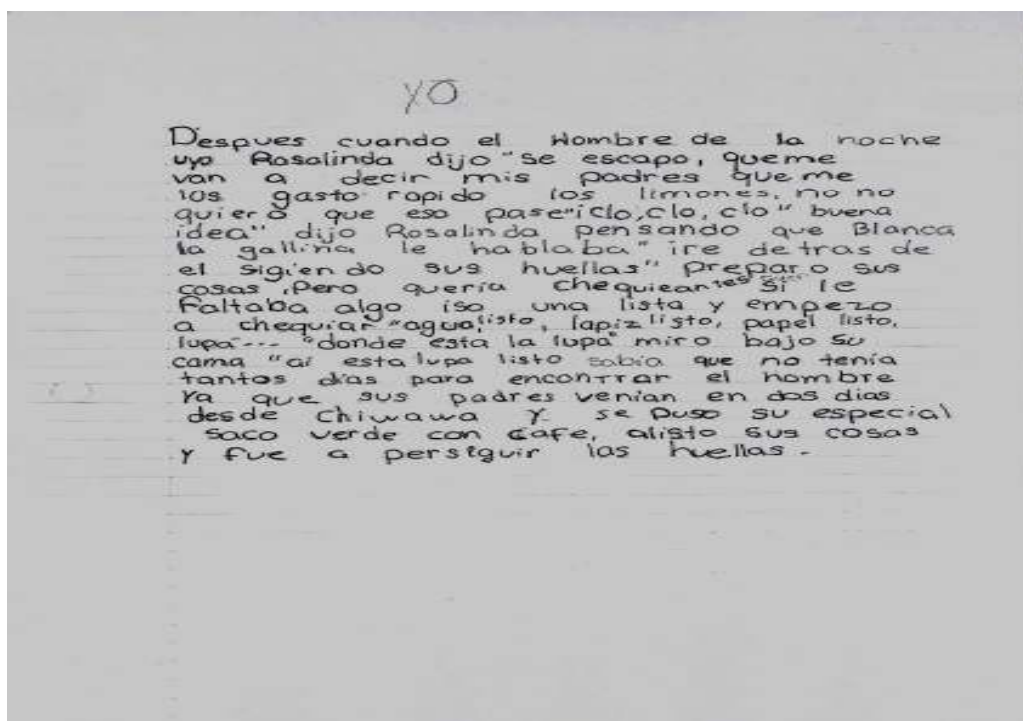 YO
Despues cuando el Hombre de la noche
uyo Rosalinda dijo "se escapo, queme
van a decir mis padres que me
los gasto rapido los limones, no no
quiero que eso pase"¡clo, clo, clo" buena
idea" dijo Rosalinda pensando que Blanca
la gallina le hablaba" ire detras de
el sigiendo sus huellas" preparo sus
cosas, pero queria chequiear si le
faltaba algo iso una lista y empezo
a chequiar "agua listo, lapiz listo, papel listo,
lupa--- "donde esta la lupa" miro bajo su
cama "ai esta lupa listo sabia que no tenía
tantos dias para encontrar el hombre
ya que sus padres venian en dos dias
desde Chiwawa y se puso su especial
saco verde con cafe, alisto sus cosas
y fue a perseguir las huellas.